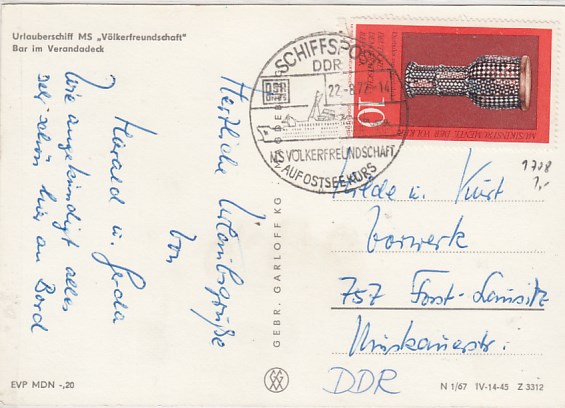 Urlauberschiff MS „Völkerfreundschaft"
Bar im Verandadeck
Herzliche Urlaubsgrüße
von
Harald u. Gerda
Wie angekündigt alles
sehr schön hier an Bord
SCHIFFSPOST
DDR
DSR
22.-8.72.-14
MS VÖLKERFREUNDSCHAFT
AUF OSTSEEKURS
10
MUSIKINSTRUMENTE DER VÖLKER
1708
1,-
u. Kurt
Vorwerk
757 Forst-Lausitz
Muskauerstr.
DDR
GEBR. GARLOFF KG
EVP MDN -,20
N 1/67 IV-14-45 Z 3312